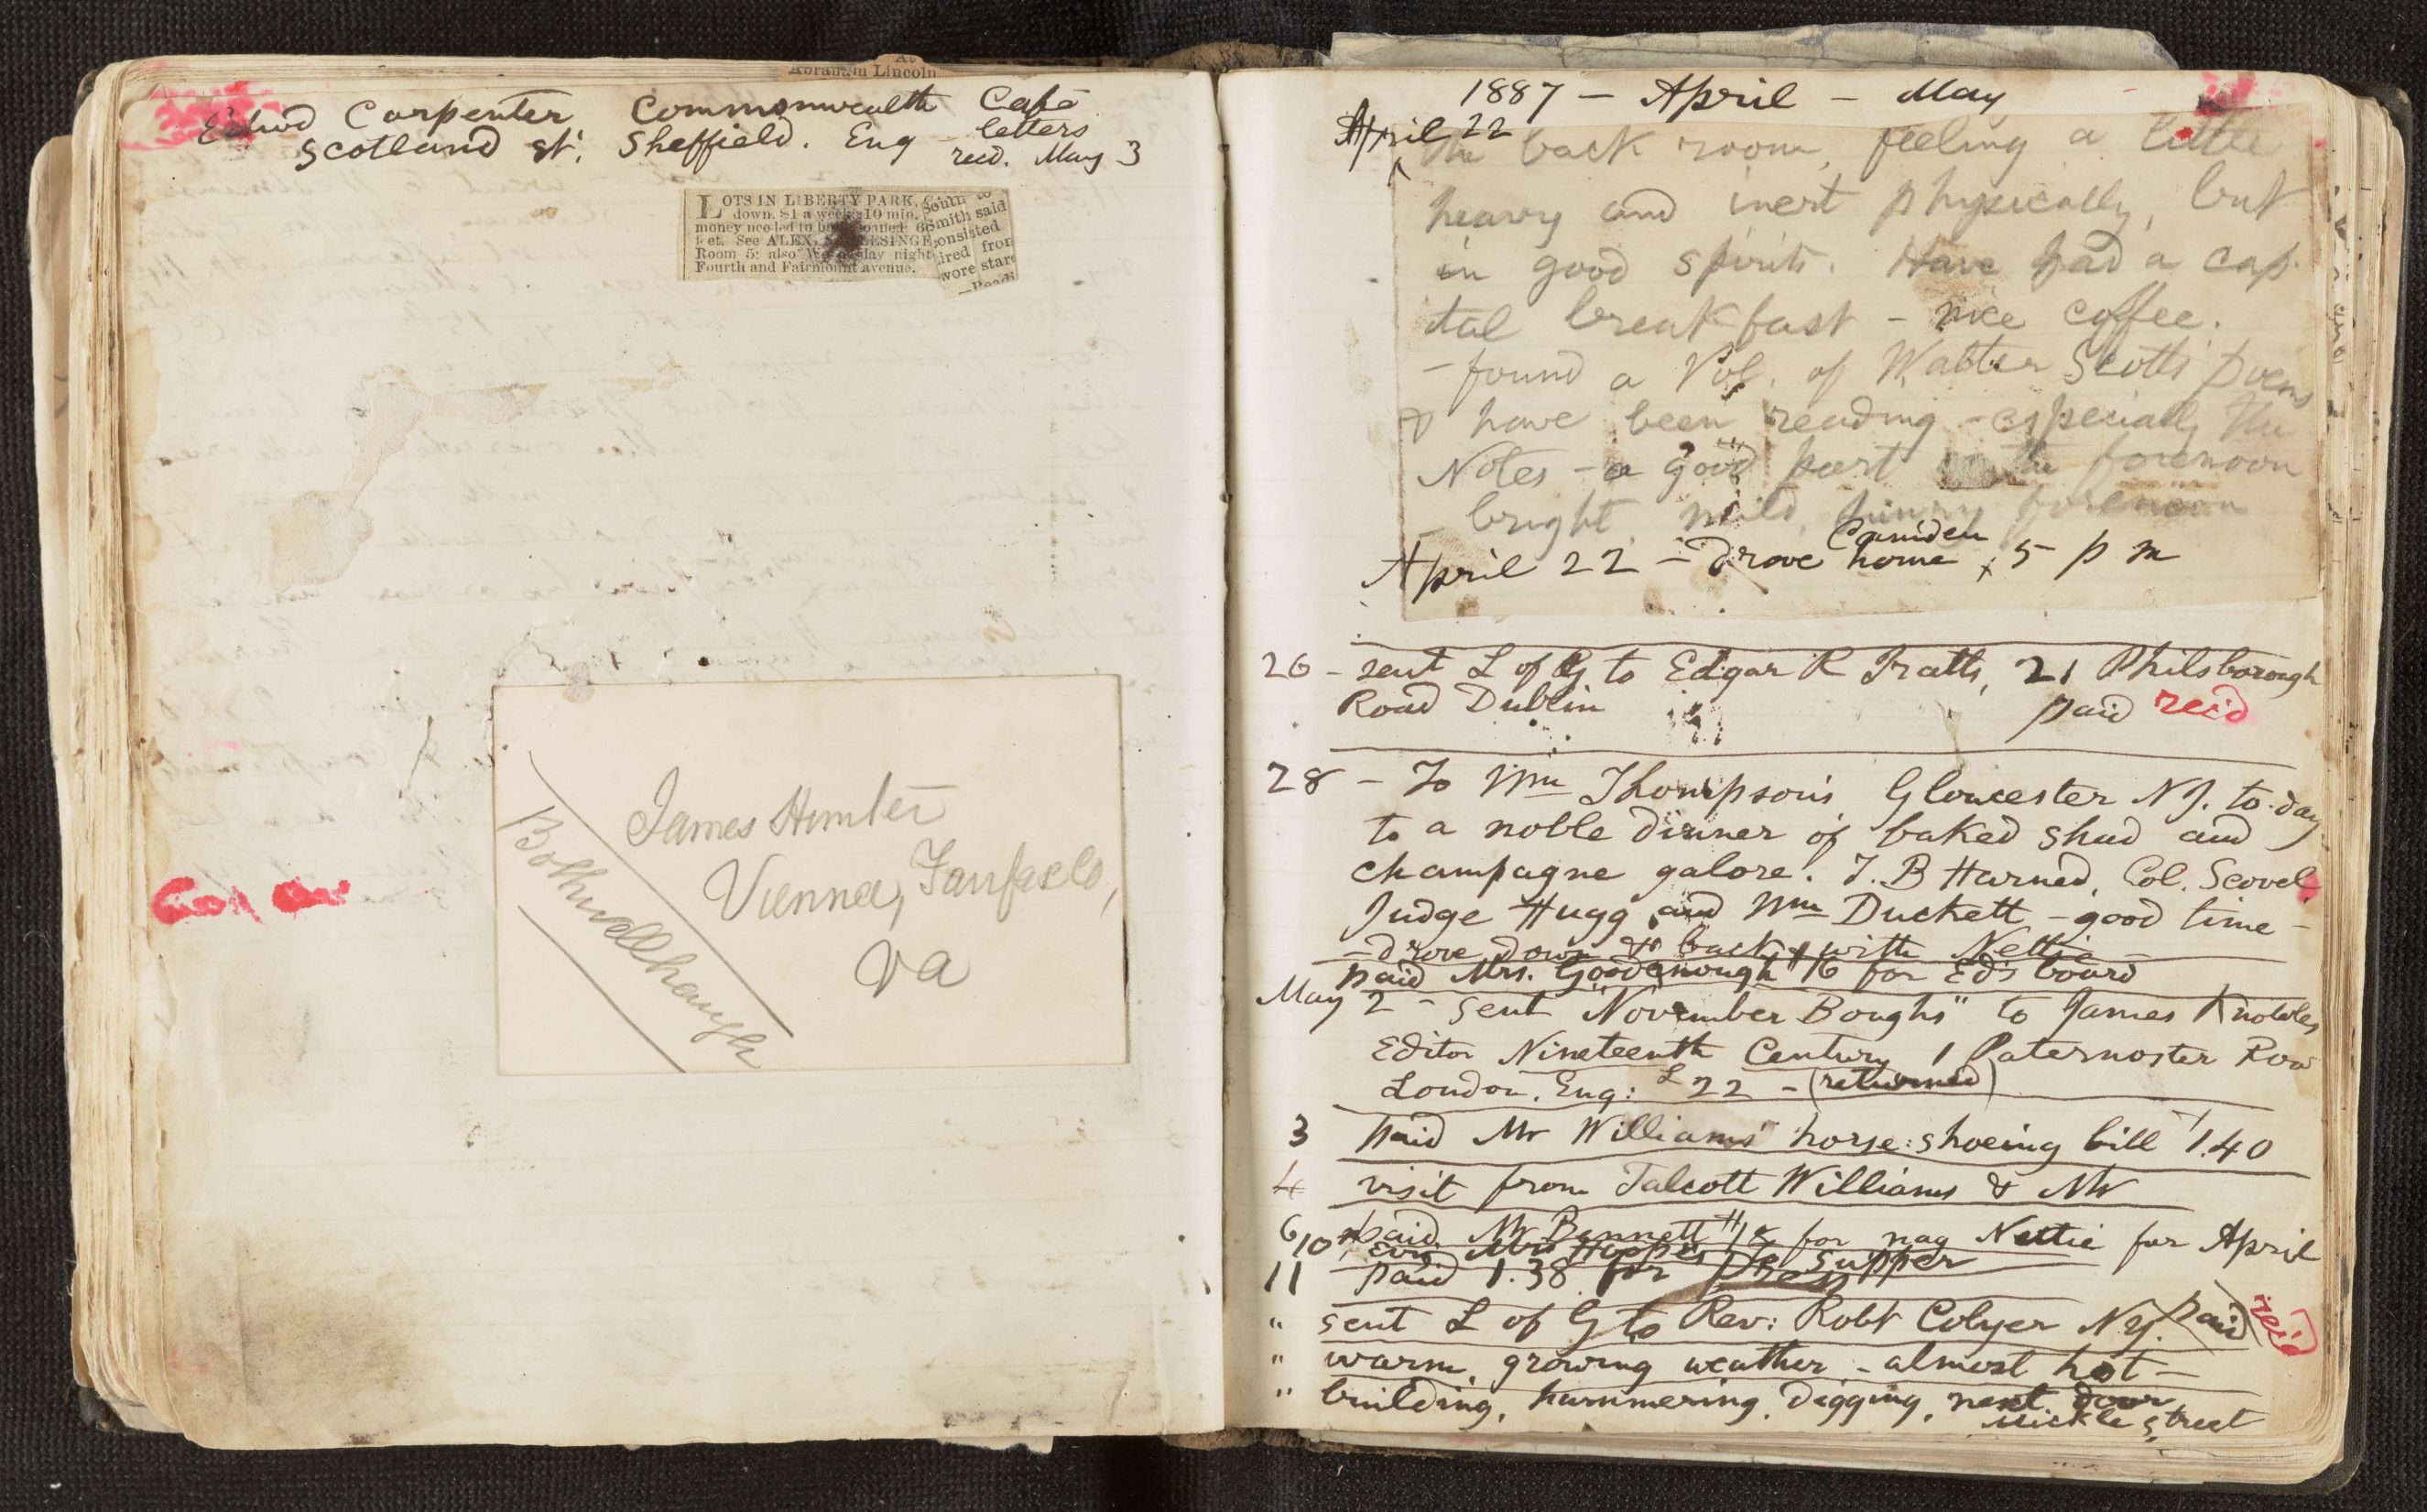 At
Abraham Lincoln
Edwd Carpenter Commonwealth Café
Scotland st: Sheffield. Eng – letters
recd. May 3
LOTS IN LIBERTY PARK,
down. $1 a week: 10 min.
money needed to loaned: 6
feet. See ALEX.
Room 5: also night
Fourth and Fairmount avenue.
South to
Smith said
onsisted
ired from
wore star
James Hunter
Vienna, Fairfax Co,
Va
Bothwellhaugh
1887 – April – May
April 22
the back room, feeling a little
heavy and inert physically, but
in good spirits. Have had a cap-
ital breakfast – nice coffee.
– found a Vol. of Walter Scott's Poems
& have been reading – especially the
Notes – a good part the forenoon
– bright, mild, sunny forenoon
Camden
April 22 – drove home, 5 p m
26 – sent L of G to Edgar R Tratts, 21 Philsborough
Road Dublin paid rec'd
28 – To Wm Thompson's Gloucester N J. to-day
to a noble dinner of baked shad and
champagne galore. T. B Harned, Col. Scovel
Judge Hugg and Wm Duckett – good time –
– drove down & back with Nettie –
paid Mrs. Goodenough $16 for Ed's board
May 2 – sent "November Boughs" to James Knowles
Editor Nineteenth Century 1 Paternoster Row
London. Eng: £22 – (returned)
3 paid Mr Williams' horse:shoeing bill 1.40
4 visit from Talcott Williams & Mr
6 paid Mr Bennett $15 for nag Nettie for April
10 Ev'g Mrs Hopper to supper
11 paid 1.38 for Press
" sent L of G to Rev: Robt Colyer N Y. paid rec'd
" warm, growing weather – almost hot –
" building, hammering, digging, next door
Mickle street